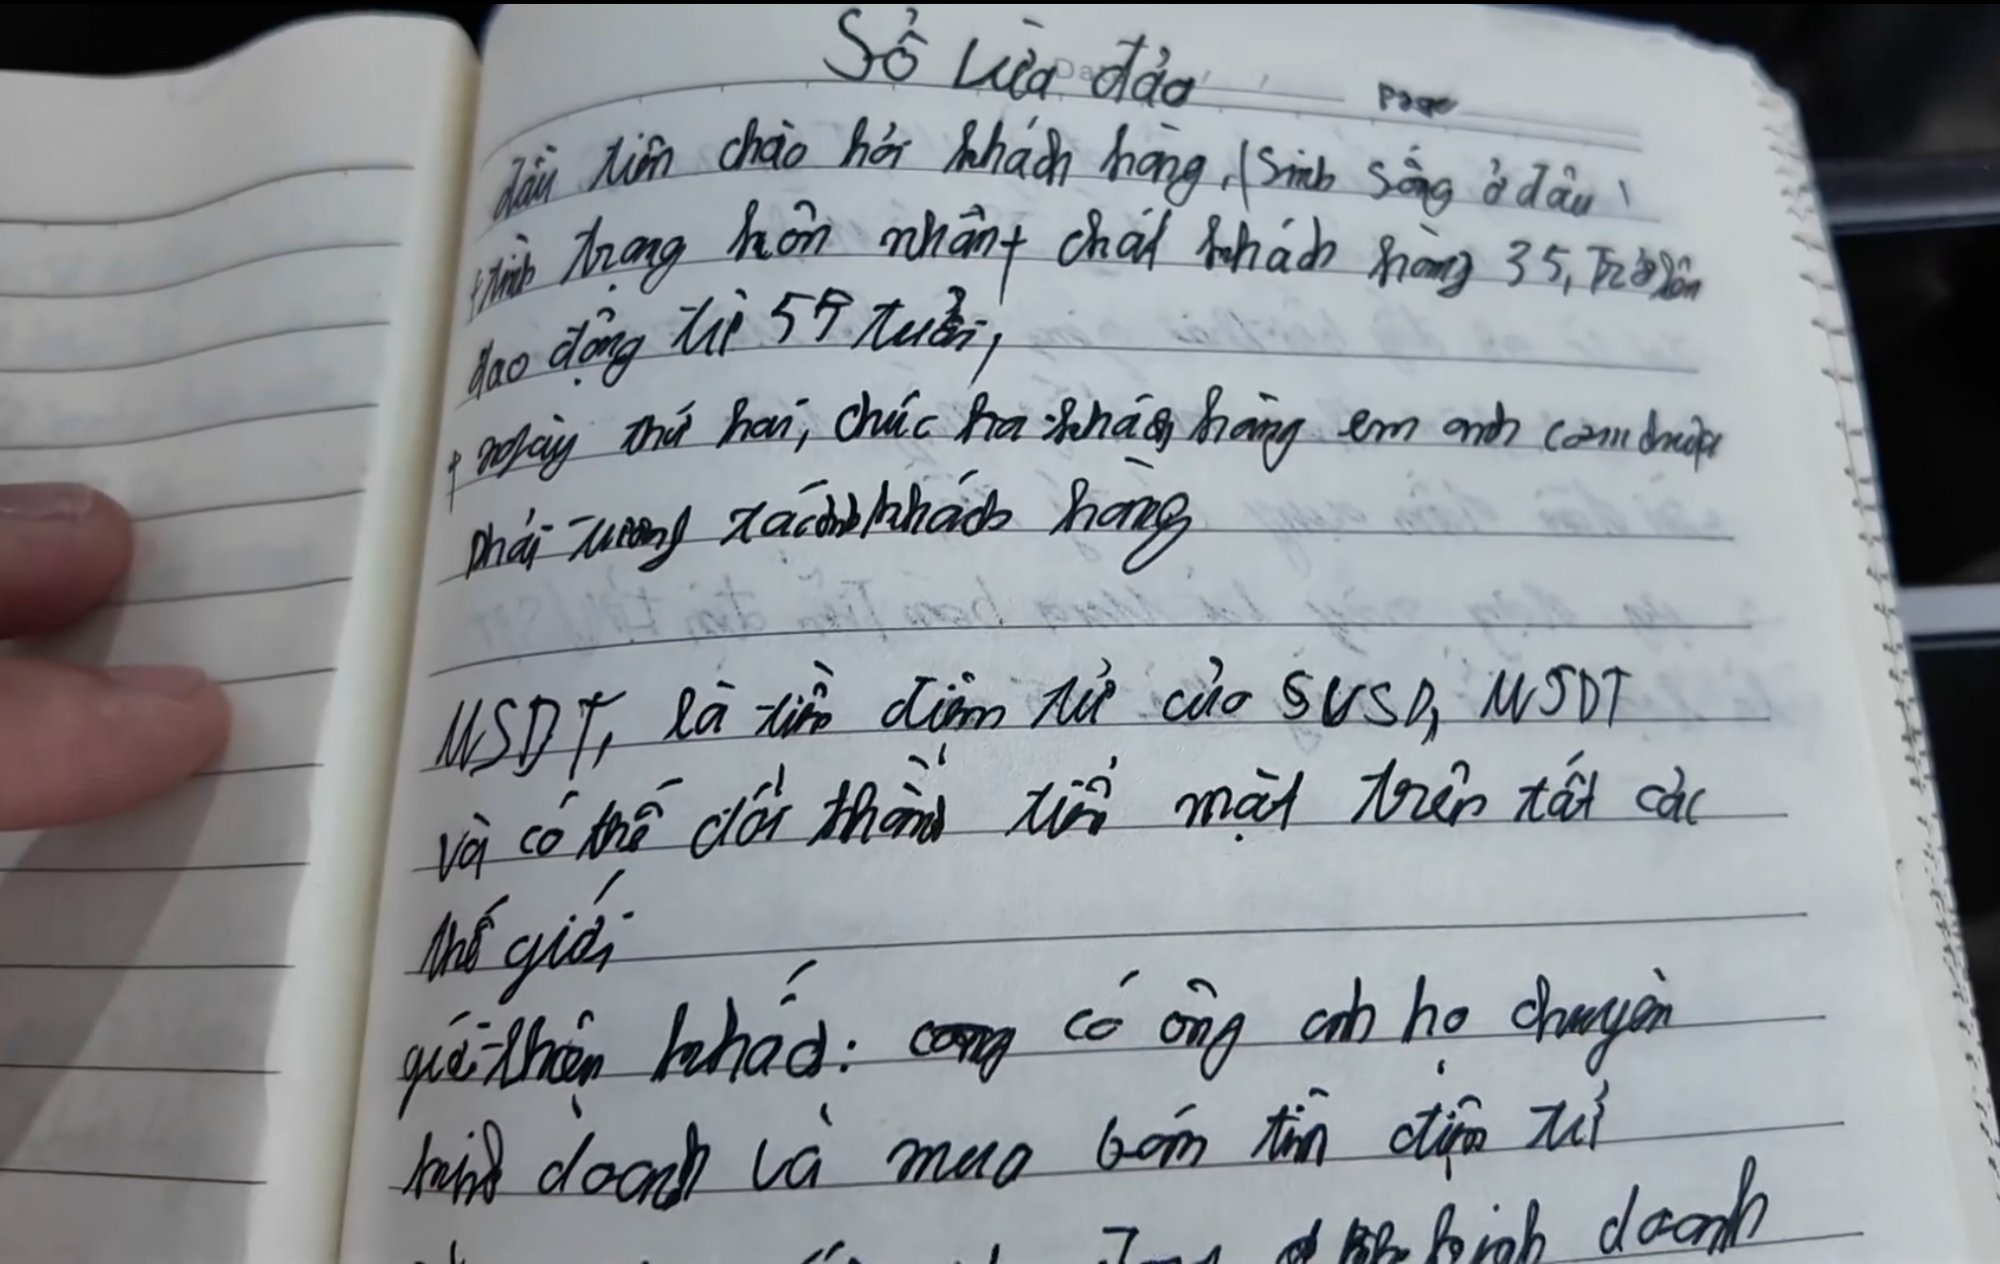 Sổ Lừa đảo
Page
đầu tiên chào hỏi khách hàng, (Sinh sống ở đâu
+ tình trạng hôn nhân + chát khách hàng 35, Trở lên
dao động từ 57 tuổi,
+ ngày thứ hai, chúc hỏi khách hàng em anh
phải tương tác khách hàng
USDT, là tiền điện tử của $USD, USDT
Và có thể đổi thành tiền mặt trên tất các
thế giới
giới thiện khách: có ông anh họ chuyên
kinh doanh và mua bán tiền điện tử
kinh doanh